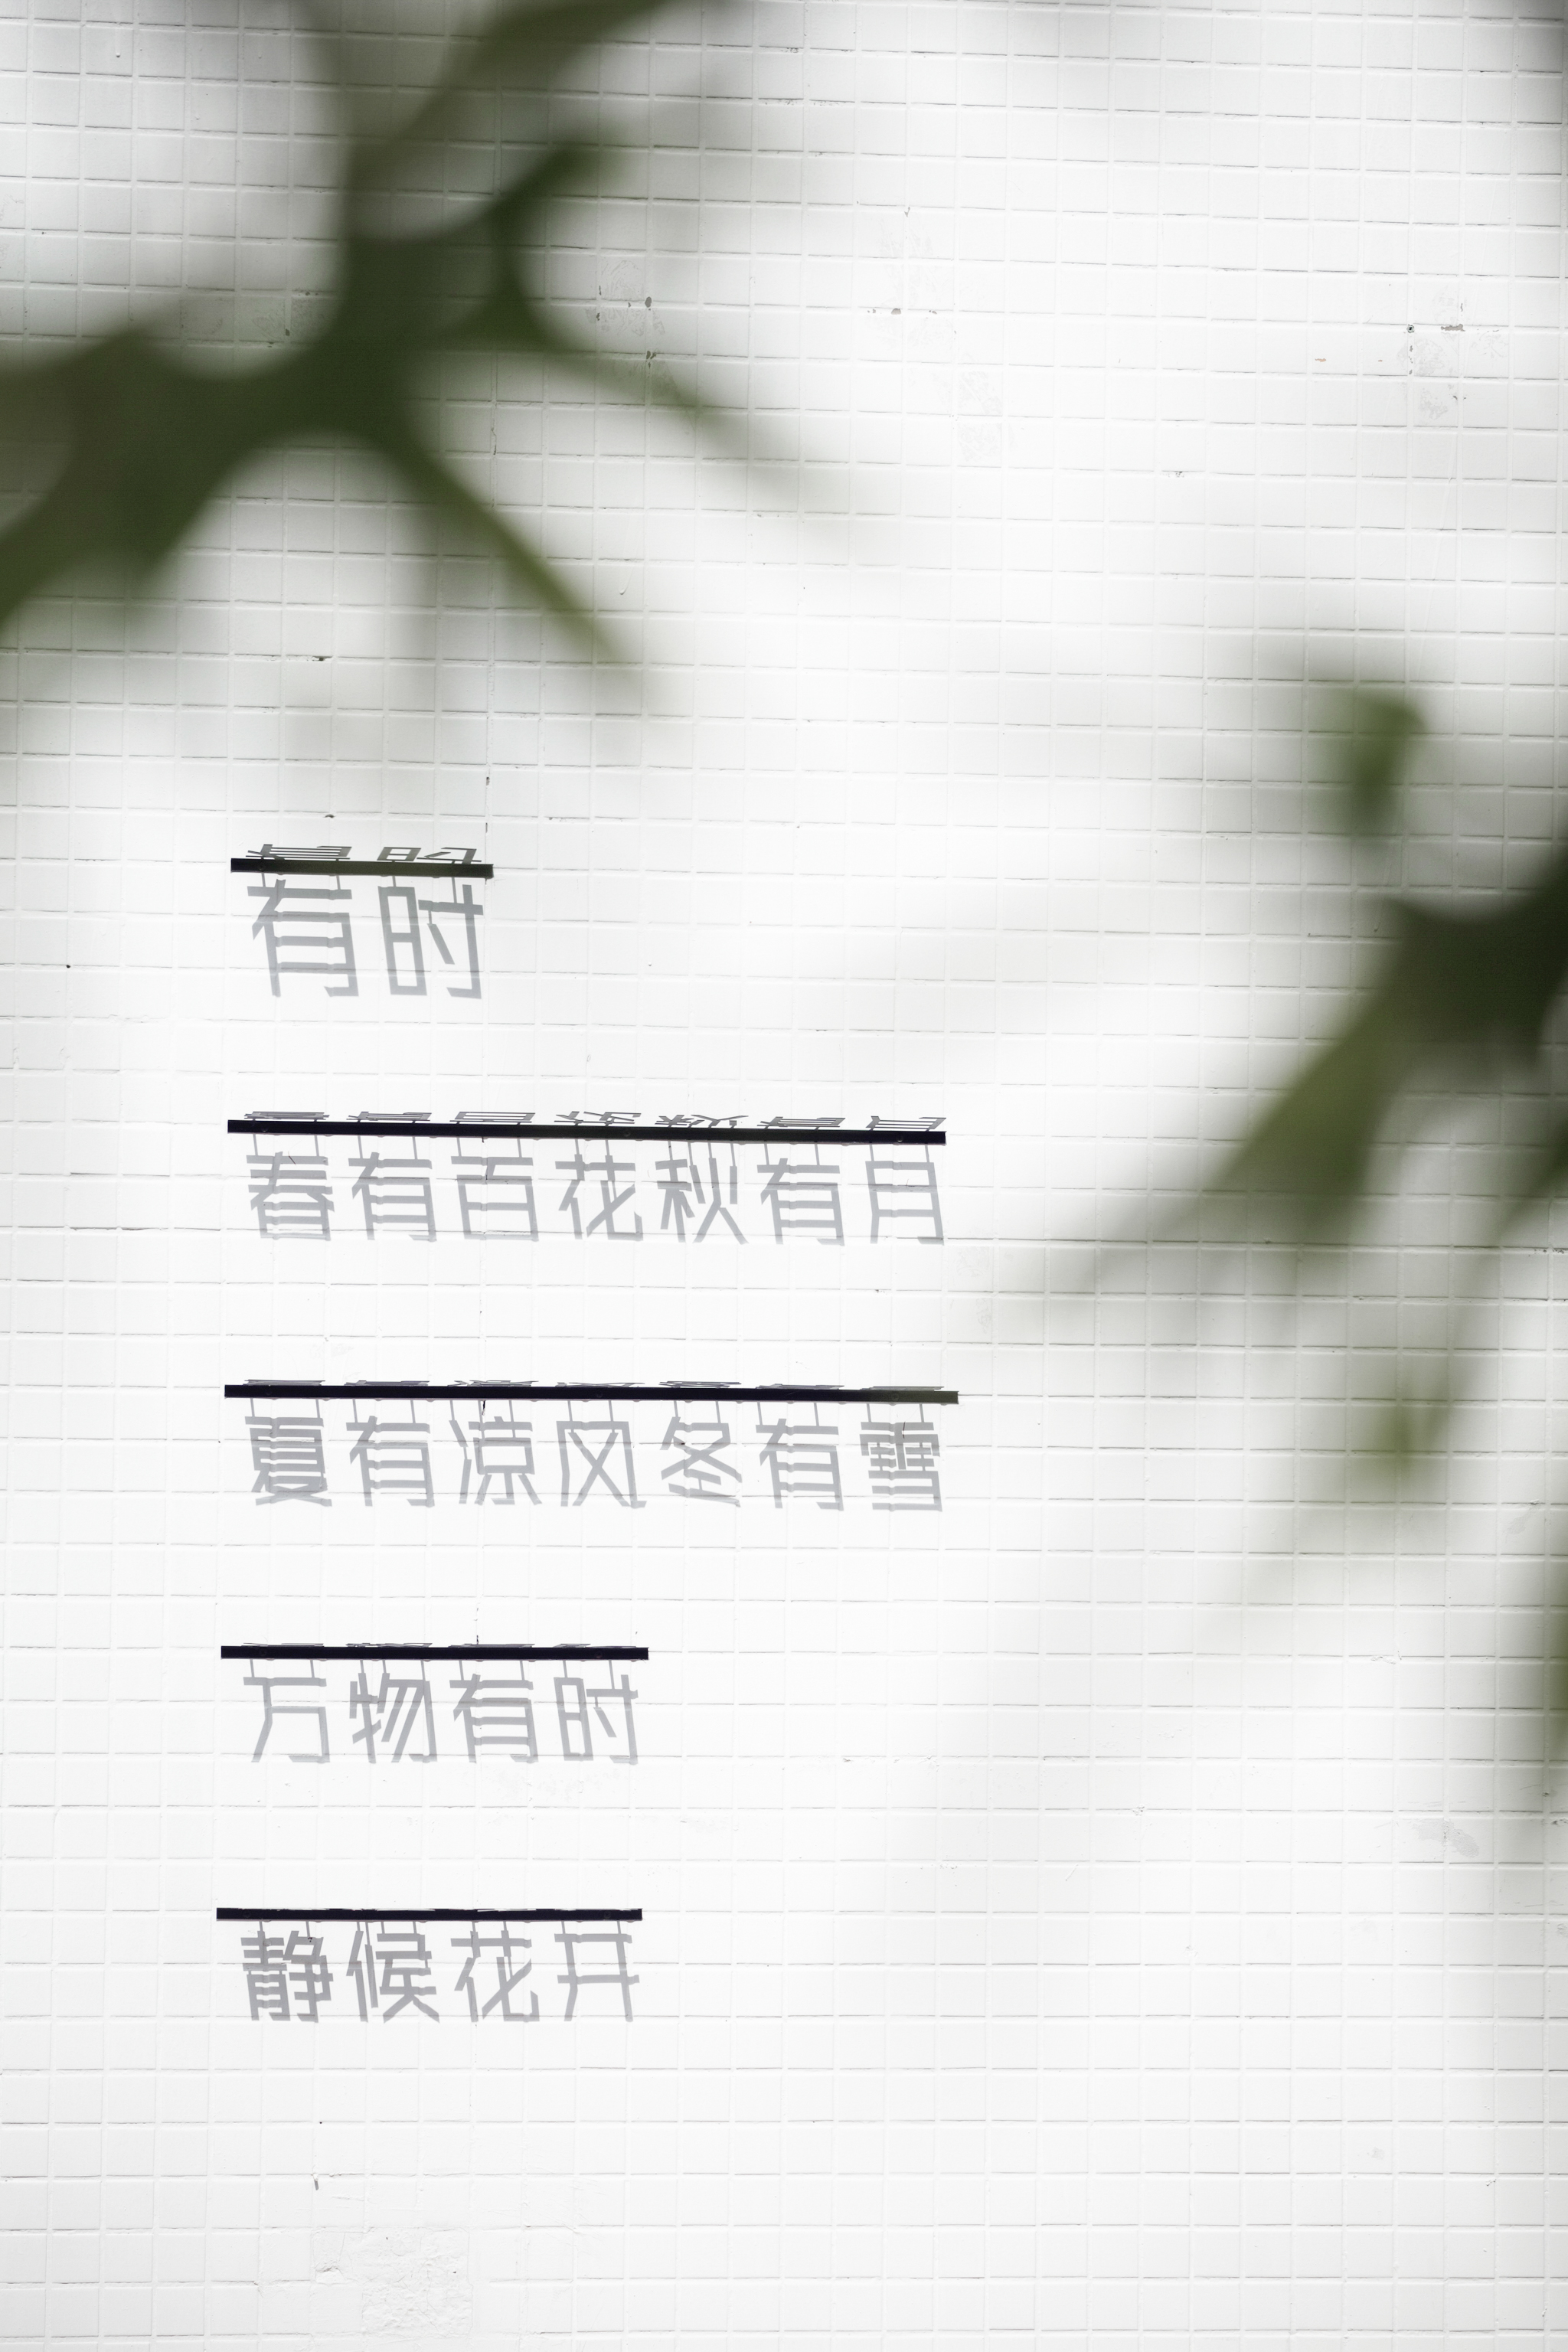 有时
春有百花秋有月
夏有凉风冬有雪
万物有时
静候花开